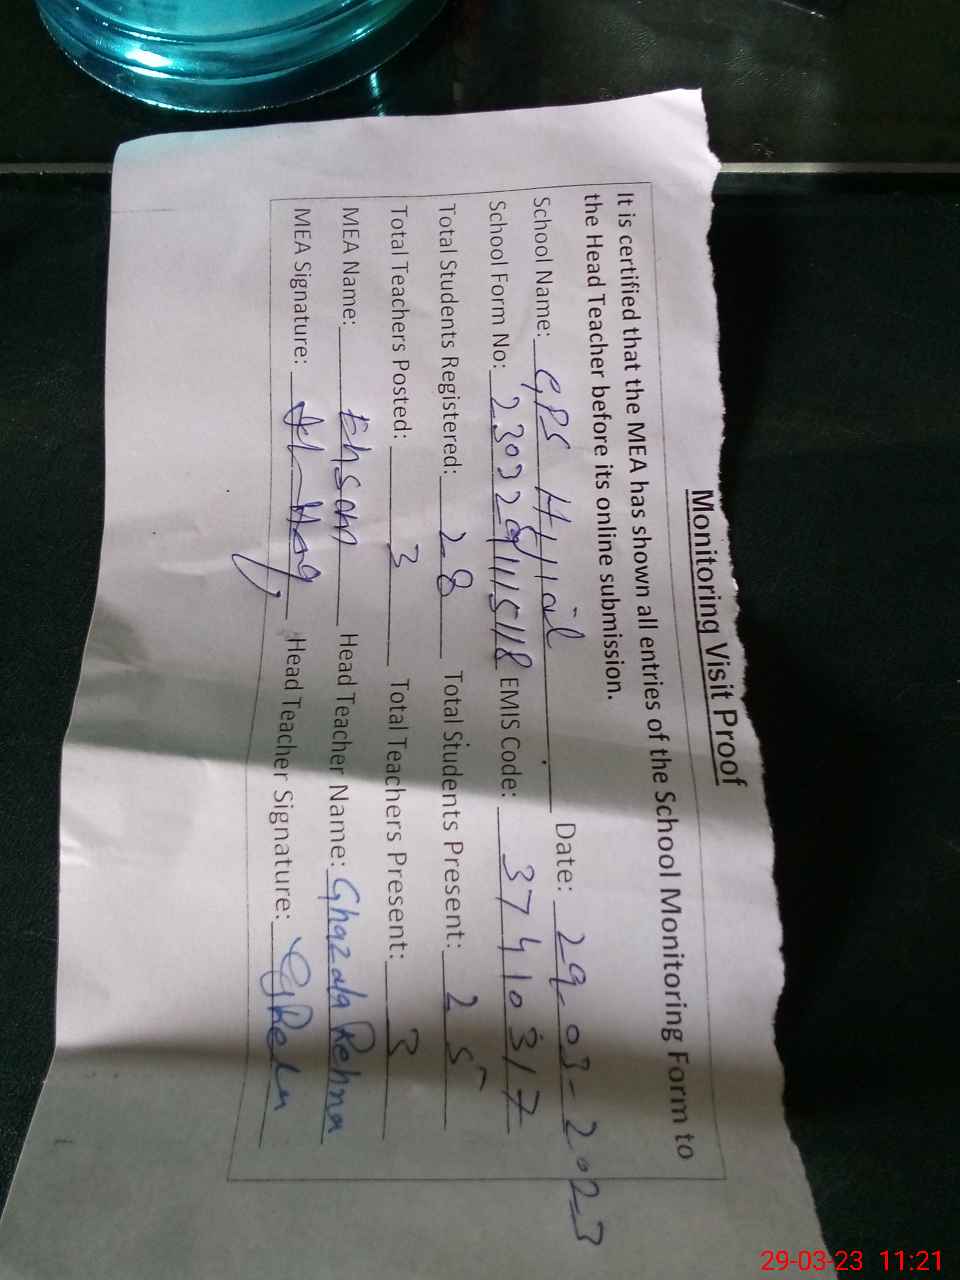 Monitoring Visit Proof
It is certified that the MEA has shown all entries of the School Monitoring Form to
the Head Teacher before its online submission.
School Name: GPS Date: 29-03-2023
School Form No: EMIS Code: 37410317
Total Students Registered: 28 Total Students Present: 25
Total Teachers Posted: 3 Total Teachers Present: 3
MEA Name: Ehsan Head Teacher Name: Ghazala Rehna
MEA Signature: Head Teacher Signature:
29-03-23 11:21